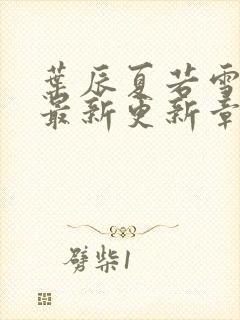 葉辰夏若雪
最新更新章
劈柴1